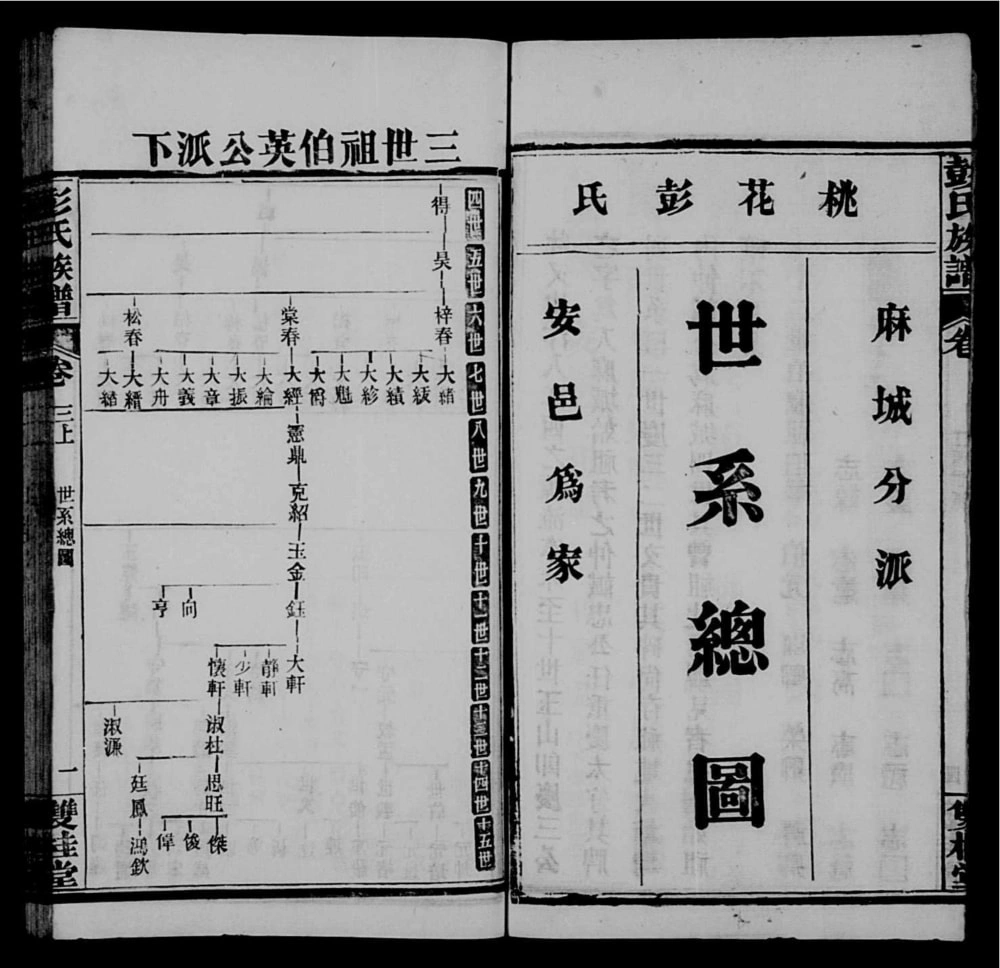 彭氏族譜
卷
桃花彭氏
麻城分派
世系總圖
安邑爲家
三世祖伯英公派下
四世
五世
六世
七世
八世
九世
十世
十一世
十二世
十三世
十四世
十五世
得
昊
梓春
棠春
松春
大緒
大紱
大績
大紾
大魁
大爵
大經
大綸
大振
大章
大義
大舟
大縉
大結
憲鼎
克紹
玉金
鈺
向
亨
大軒
靜軒
少軒
懷軒
淑杜
淑濂
思旺
廷鳳
傑
俊
偉
鴻欽
彭氏族譜
卷三上
世系總圖
一
雙桂堂